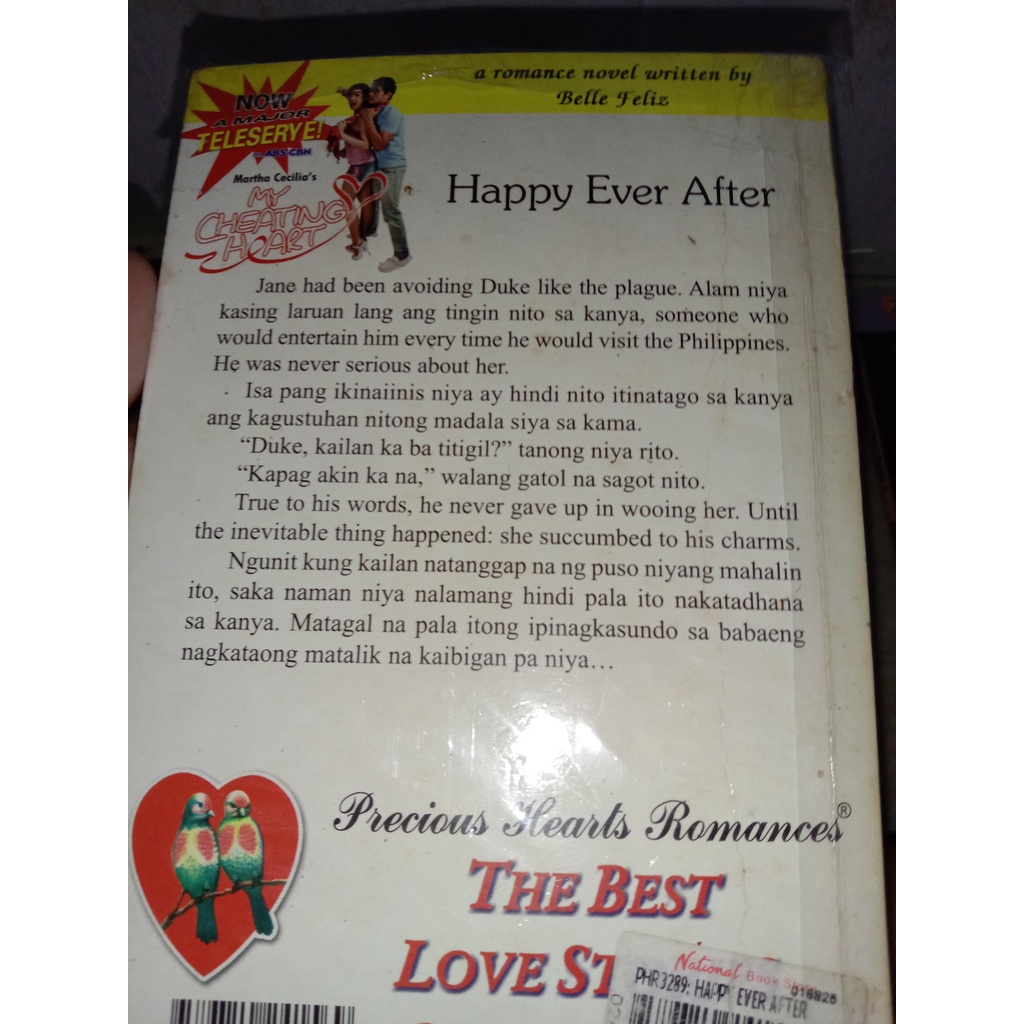 a romance novel written by
Belle Feliz
NOW
A MAJOR
TELESERYE!
ABS-CBN
Martha Cecilia's
MY
CHEATING
HEART
Happy Ever After
Jane had been avoiding Duke like the plague. Alam niya
kasing laruan lang ang tingin nito sa kanya, someone who
would entertain him every time he would visit the Philippines.
He was never serious about her.
Isa pang ikinaiinis niya ay hindi nito itinatago sa kanya
ang kagustuhan nitong madala siya sa kama.
“Duke, kailan ka ba titigil?” tanong niya rito.
“Kapag akin ka na,” walang gatol na sagot nito.
True to his words, he never gave up in wooing her. Until
the inevitable thing happened: she succumbed to his charms.
Ngunit kung kailan natanggap na ng puso niyang mahalin
ito, saka naman niya nalamang hindi pala ito nakatadhana
sa kanya. Matagal na pala itong ipinagkasundo sa babaeng
nagkataong matalik na kaibigan pa niya…
Precious Hearts Romances®
THE BEST
LOVE
National Book
016926
PHR3289: HAPPY EVER AFTER